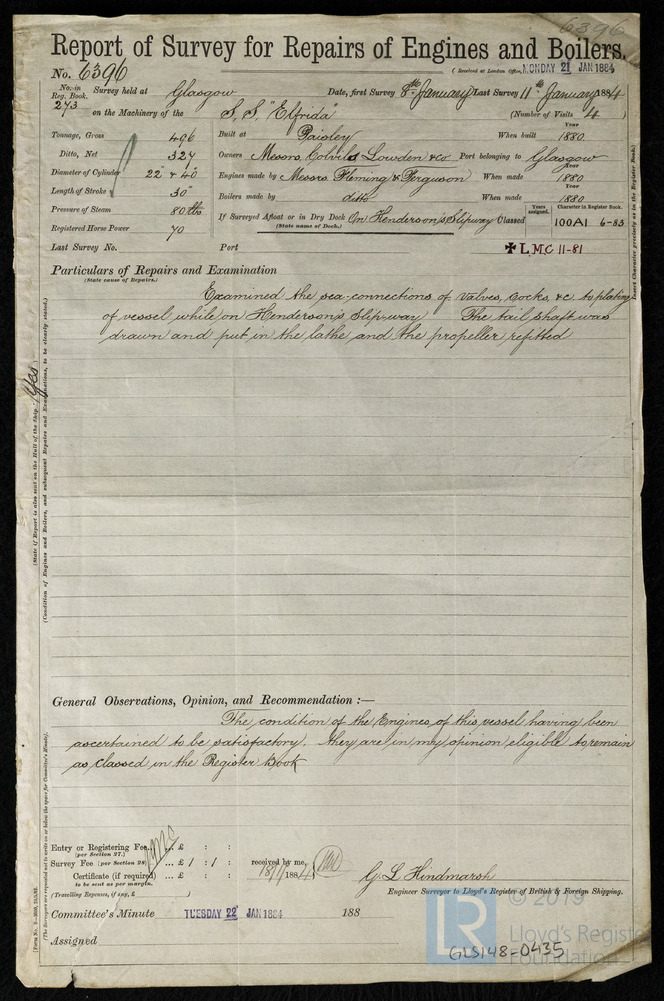 6396
Report of Survey for Repairs of Engines and Boilers.
No. 6396 (Received at London Office, MONDAY 21 JAN 1884
No. in Reg. Book. 273 Survey held at Glasgow Date, first Survey 8th January Last Survey 11th January 1884
on the Machinery of the S, S, "Elfrida" (Number of Visits 4)
Tonnage, Gross 496 Built at Paisley When built Year 1880
Ditto, Net 327 Owners Messrs Colvils Lowden & Co Port belonging to Glasgow
Diameter of Cylinder 22" & 40" Engines made by Messrs Fleming & Ferguson When made Year 1880
Length of Stroke 30" Boilers made by ditto When made Year 1880
Pressure of Steam 80 lbs If Surveyed Afloat or in Dry Dock On Henderson's Slipway Classed Years assigned. Character in Register Book. 100A1 6-83
(State name of Dock.)
Registered Horse Power 70
Last Survey No. Port ✠ LMC 11-81
Particulars of Repairs and Examination
(State cause of Repairs.)
Examined the sea-connections of valves, cocks, &c to plating
of vessel while on Henderson's Slipway The tail shaft was
drawn and put in the lathe and the propeller refitted
(State if Report is also sent on the Hull of the Ship. Yes
(Condition of Engines and Boilers, and subsequent Repairs and Examinations, to be clearly stated.)
Insert Character precisely as in the Register Book.
General Observations, Opinion, and Recommendation :—
The condition of the Engines of this vessel having been
ascertained to be satisfactory. they are in my opinion eligible to remain
as classed in the Register Book
Entry or Registering Fee... ... £ : :
(per Section 27.)
Survey Fee (per Section 28) ... £ 1 : 1 : received by me,
Certificate (if required) ... £ : : 18/1/1884
to be sent as per margin.
(Travelling Expenses, if any, £ )
G. L Hindmarsh
Engineer Surveyor to Lloyd's Register of British & Foreign Shipping.
Committee's Minute TUESDAY 22 JAN 1884 188
Assigned
© 2019
LR
Lloyd's Register
Foundation
GLS148-0435